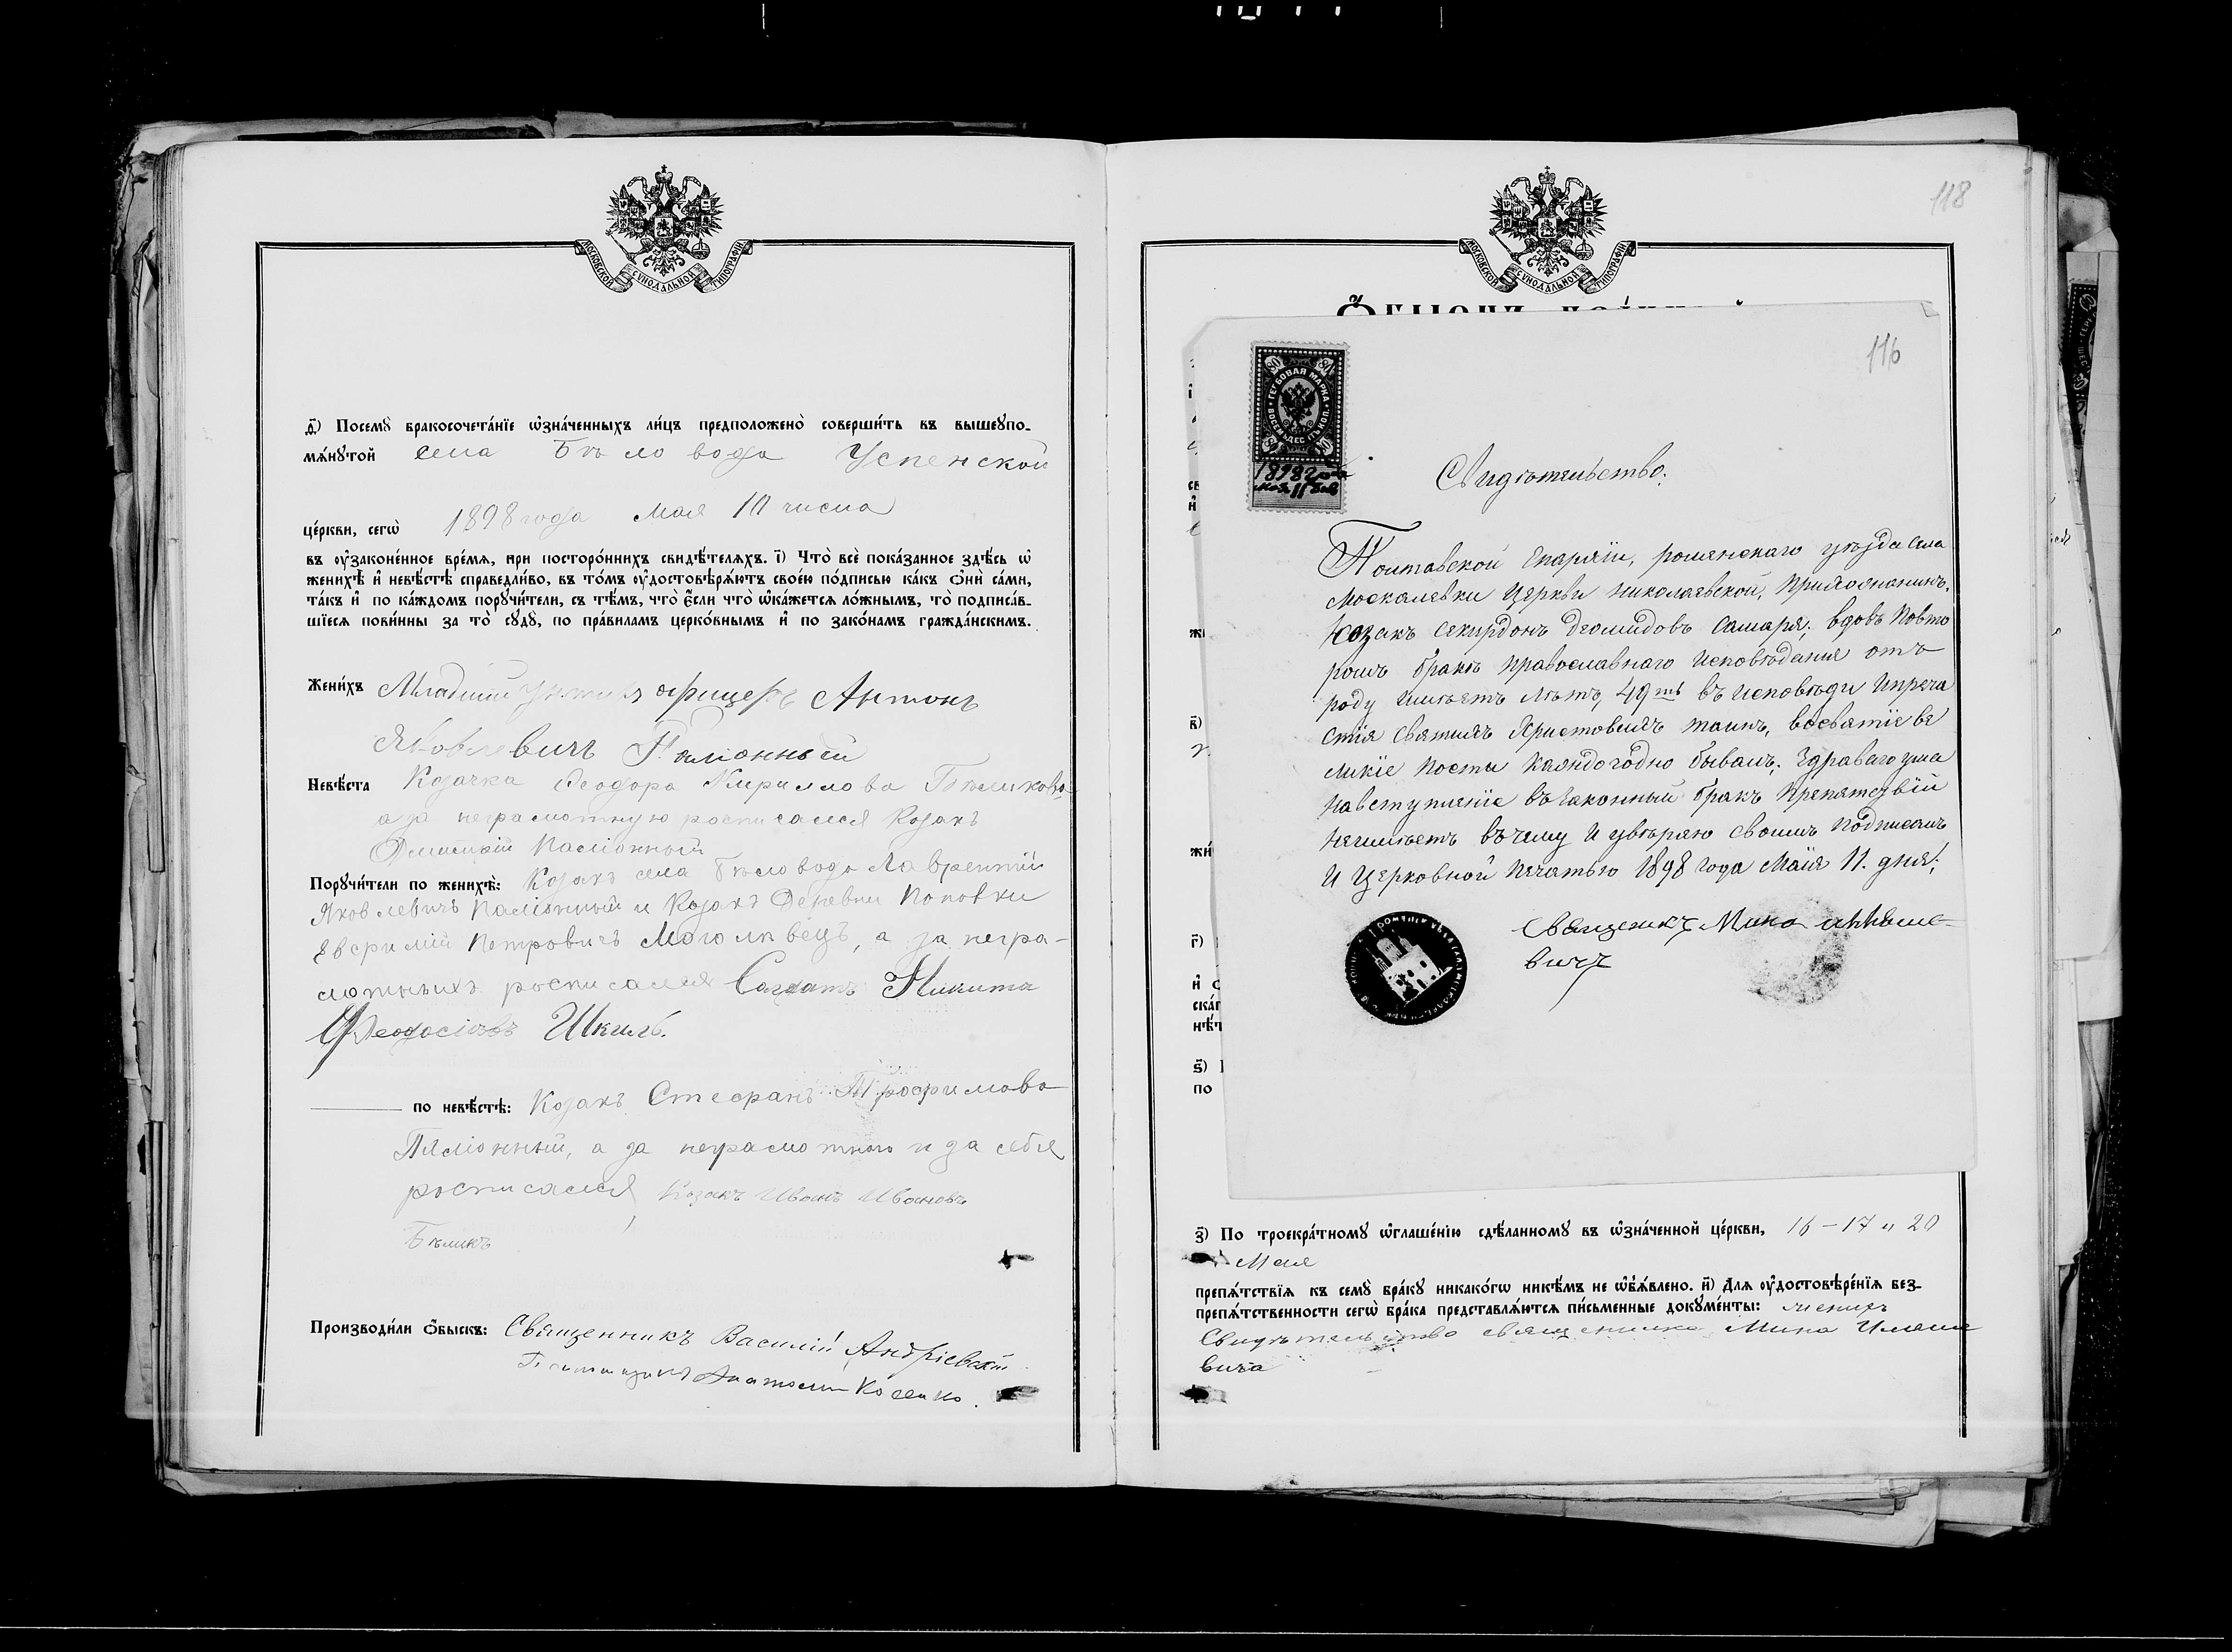 МОСКОВСКОЙ СУНОДАЛЬНОЙ ТИПОГРАФІИ
д҃і) Посемꙋ̀ бракосочета́нїе ѡ҆зна́ченныхъ ли́цъ предположено̀ соверши́ть въ вышеꙋпо-
мѧ́нꙋтой села Бѣловода Успенской
це́ркви, сегѡ̀ 1898 года Мая 10 числа
въ ᲂу҆законе́нное вре́мѧ, при посторо́ннихъ свидѣ́телѧхъ. і҃) Что̀ всѐ пока́занное здѣ́сь ѡ҆
женихѣ̀ и҆ невѣ́стѣ справедли́во, въ то́мъ ᲂу҆достовѣрѧ́ютъ свое́ю по́дписью ка́къ ѻ҆нѝ са́ми,
та́къ и҆ по ка́ждомъ порꙋчи́тели, съ тѣ́мъ, что̀ є҆́сли что̀ ѡ҆ка́жетсѧ ло́жнымъ, то̀ подписа́в-
шїесѧ пови́нны за то̀ сꙋдꙋ̀, по пра́виламъ церко́внымъ и҆ по зако́намъ гражда́нскимъ.
Жени́хъ Младшій унтеръ офицеръ Антонъ
Яковлевичъ Паліонный
Невѣ́ста Козачка Ѳеодора Кириллова Бѣликова
а за неграмотную росписался Козакъ
Паліонный
Порꙋчи́тели по женихѣ̀: Козакъ села Бѣловода Лаврентій
Яковлевичъ Паліонный и Козакъ Деревни Поповки
Евфимій Петровичъ Моголивецъ, а за негра-
мотныхъ росписался Солдатъ Никита
Феодосіевъ Шкиль.
по невѣ́стѣ: Козакъ Стефанъ Трофимовъ
Паліонный, а за неграмотного и за себя
росписался Козакъ Иванъ Ивановъ
Бѣликъ
Производи́ли ѻ҆́быскъ: Священникъ Василій Андріевскій
Псаломщикъ Анатолій Косенко.
118
МОСКОВСКОЙ СУНОДАЛЬНОЙ ТИПОГРАФІИ
116
ГЕРБОВАЯ МАРКА ВОСЕМЬДЕСЯТЪ КОП.
80
1898 года
мая 11 дня
Свидѣтельство:
Полтавской Епархіи, роменскаго уѣзда села
Москалевки Церкви николаевской, прихожанинъ,
Козакъ Спиридонъ Деомидовъ Самаря; вдовъ повто
ромъ бракѣ православнаго исповѣданія отъ
роду имѣетъ лѣтъ, 49ть въ исповѣди иприча
стія святыхъ Христовыхъ таинъ, всесвятіе ве
ликіе посты каждогодно бываетъ; Здраваго ума
навступленіе въ законный бракъ препятствій
неимѣетъ въ чему и увѣряю своимъ подписомъ
и Церковной печатью 1898 года Маія 11. дня;
Священикъ Мина
вичъ
з҃) По троекра́тномꙋ ѡ҆глаше́нїю сдѣ́ланномꙋ въ ѡ҆зна́ченной це́ркви, 16 – 17 и 20
Мая
препѧ́тствїѧ къ семꙋ̀ бра́кꙋ никако́гѡ никѣ́мъ не ѡ҆б̾ѧ́влено. и҃) Длѧ ᲂу҆достовѣре́нїѧ без-
препѧ́тственности сегѡ̀ бра́ка представлѧ́ютсѧ пи́сьменные докꙋме́нты:
Свидѣтельство священика Мина Иляше
вича